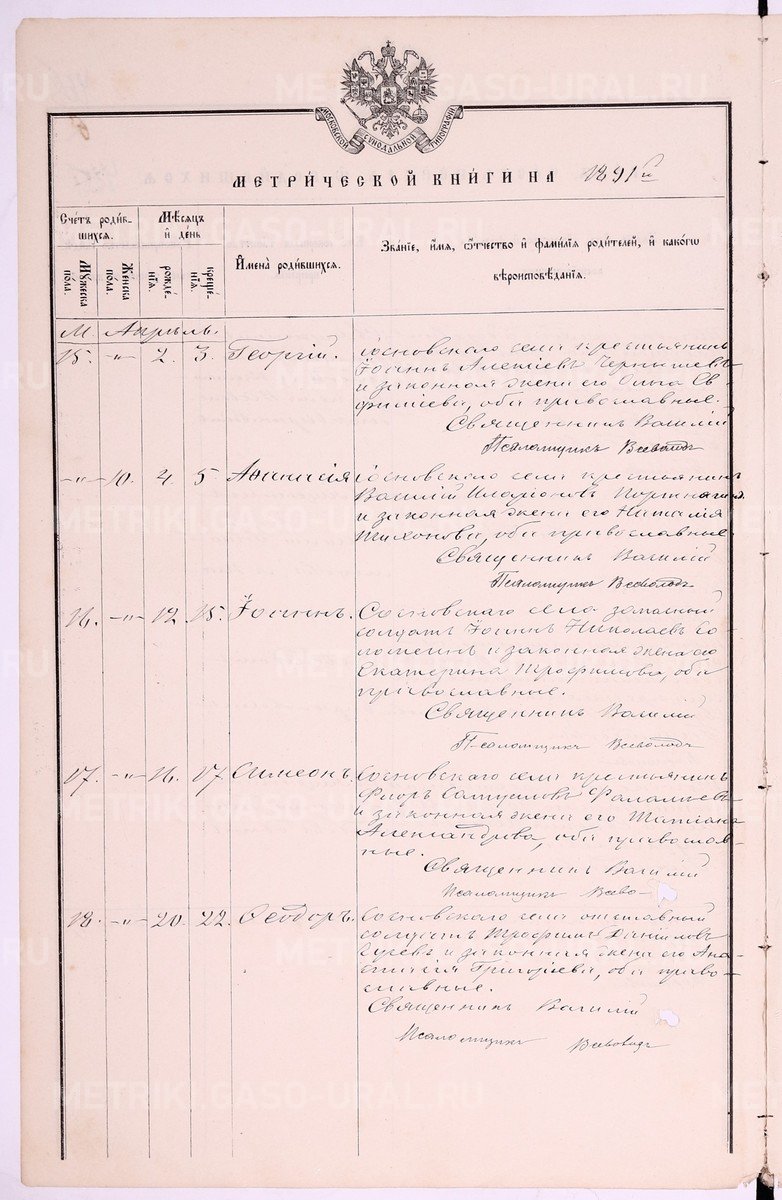 МОСКОВСКОЙ СѴНОДАЛЬНОЙ ТИПОГРАФІИ
МЕТРИ́ЧЕСКОЙ КНИ́ГИ НА 1891 й
Сче́тъ роди́в-
шихся.
Мѣ́сяцъ
и́ де́нь
Мꙋ́жеска по́ла.
Же́нска по́ла.
рожде́-
нїя.
креще́-
нїя.
И҆мена̀ роди́вшихся.
Зва́нїе, и҆́мя, ѻ҆́тчество и҆ фами́лїя роди́телей, и҆ како́гѡ
вѣроисповѣ́данїя.
М. Апрѣль.
15. -„- 2. 3. Георгій. Сосновскаго села крестьянинъ
Іоаннъ Алексіевъ Чернышевъ
и законная жена его Ольга Ев-
фиміева, оба православные.
Священникъ Василій
Псаломщикъ Всеволодъ
-„- 10. 4. 5. Аѳанасія Сосновскаго села крестьянинъ
Василій Иларіоновъ
и законная жена его Наталія
Тихонова, оба православные.
Священникъ Василій
Псаломщикъ Всеволодъ
16. -„- 12. 15. Іоаннъ. Сосновскаго села запасный
солдатъ Іоаннъ Николаевъ Со-
ломеинъ и законная жена его
Екатерина Трофимова, оба
православные.
Священникъ Василій
Псаломщикъ Всеволодъ
17. -„- 16. 17. Симеонъ. Сосновскаго села крестьянинъ
Флоръ Самуиловъ Фалалѣевъ
и законная жена его Татіана
Александрова, оба православ-
ные.
Священникъ Василій
Псаломщикъ Всево-
18. -„- 20. 22. Ѳеодоръ. Сосновскаго села отставный
солдатъ Трофимъ Даніиловъ
и законная жена его Ана-
стасія Григоріева, оба право-
славные.
Священникъ Василій
Псаломщикъ Всеволодъ
METRIKI.GASO-URAL.RU